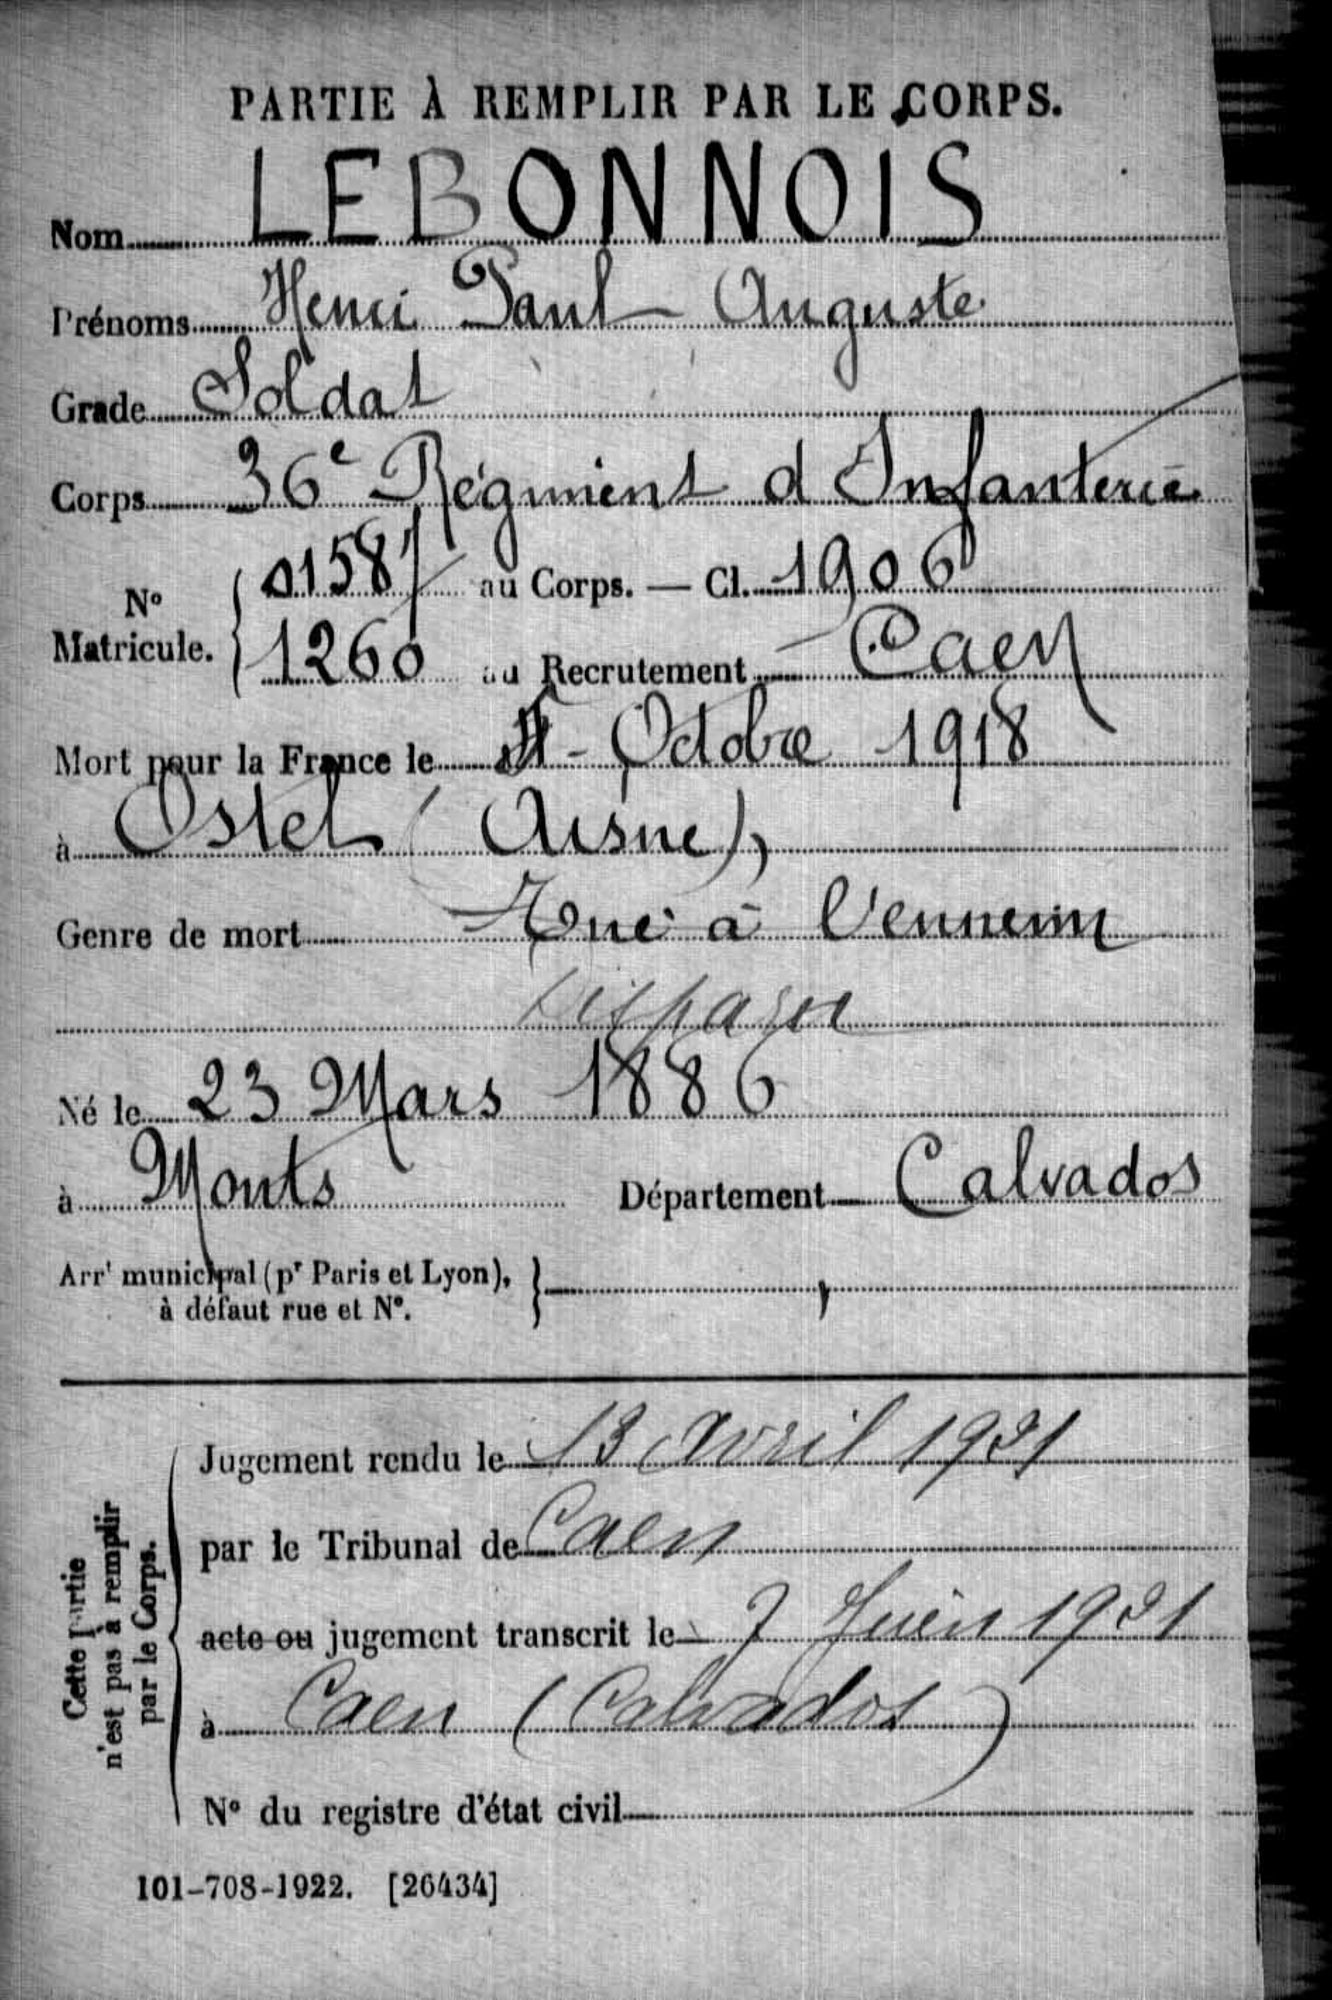 PARTIE À REMPLIR PAR LE CORPS.
Nom LEBONNOIS
Prénoms Henri Paul Auguste
Grade Soldat
Corps 36e Régiment d Infanterie
No Matricule. 01587 au Corps. — Cl. 1906
1260 au Recrutement Caen
Mort pour la France le Octobre 1918
à Ostel (Aisne),
Genre de mort Tué à l'ennemi
Disparu
Né le 23 Mars 1886
à Monts Département Calvados
Arrt municipal (pr Paris et Lyon),
à défaut rue et No.
Cette partie n'est pas à remplir par le Corps.
Jugement rendu le 13 Avril 1921
par le Tribunal de Caen
acte ou jugement transcrit le 7 Juin 1921
à Caen (Calvados)
No du registre d'état civil
101-708-1922. [26434]